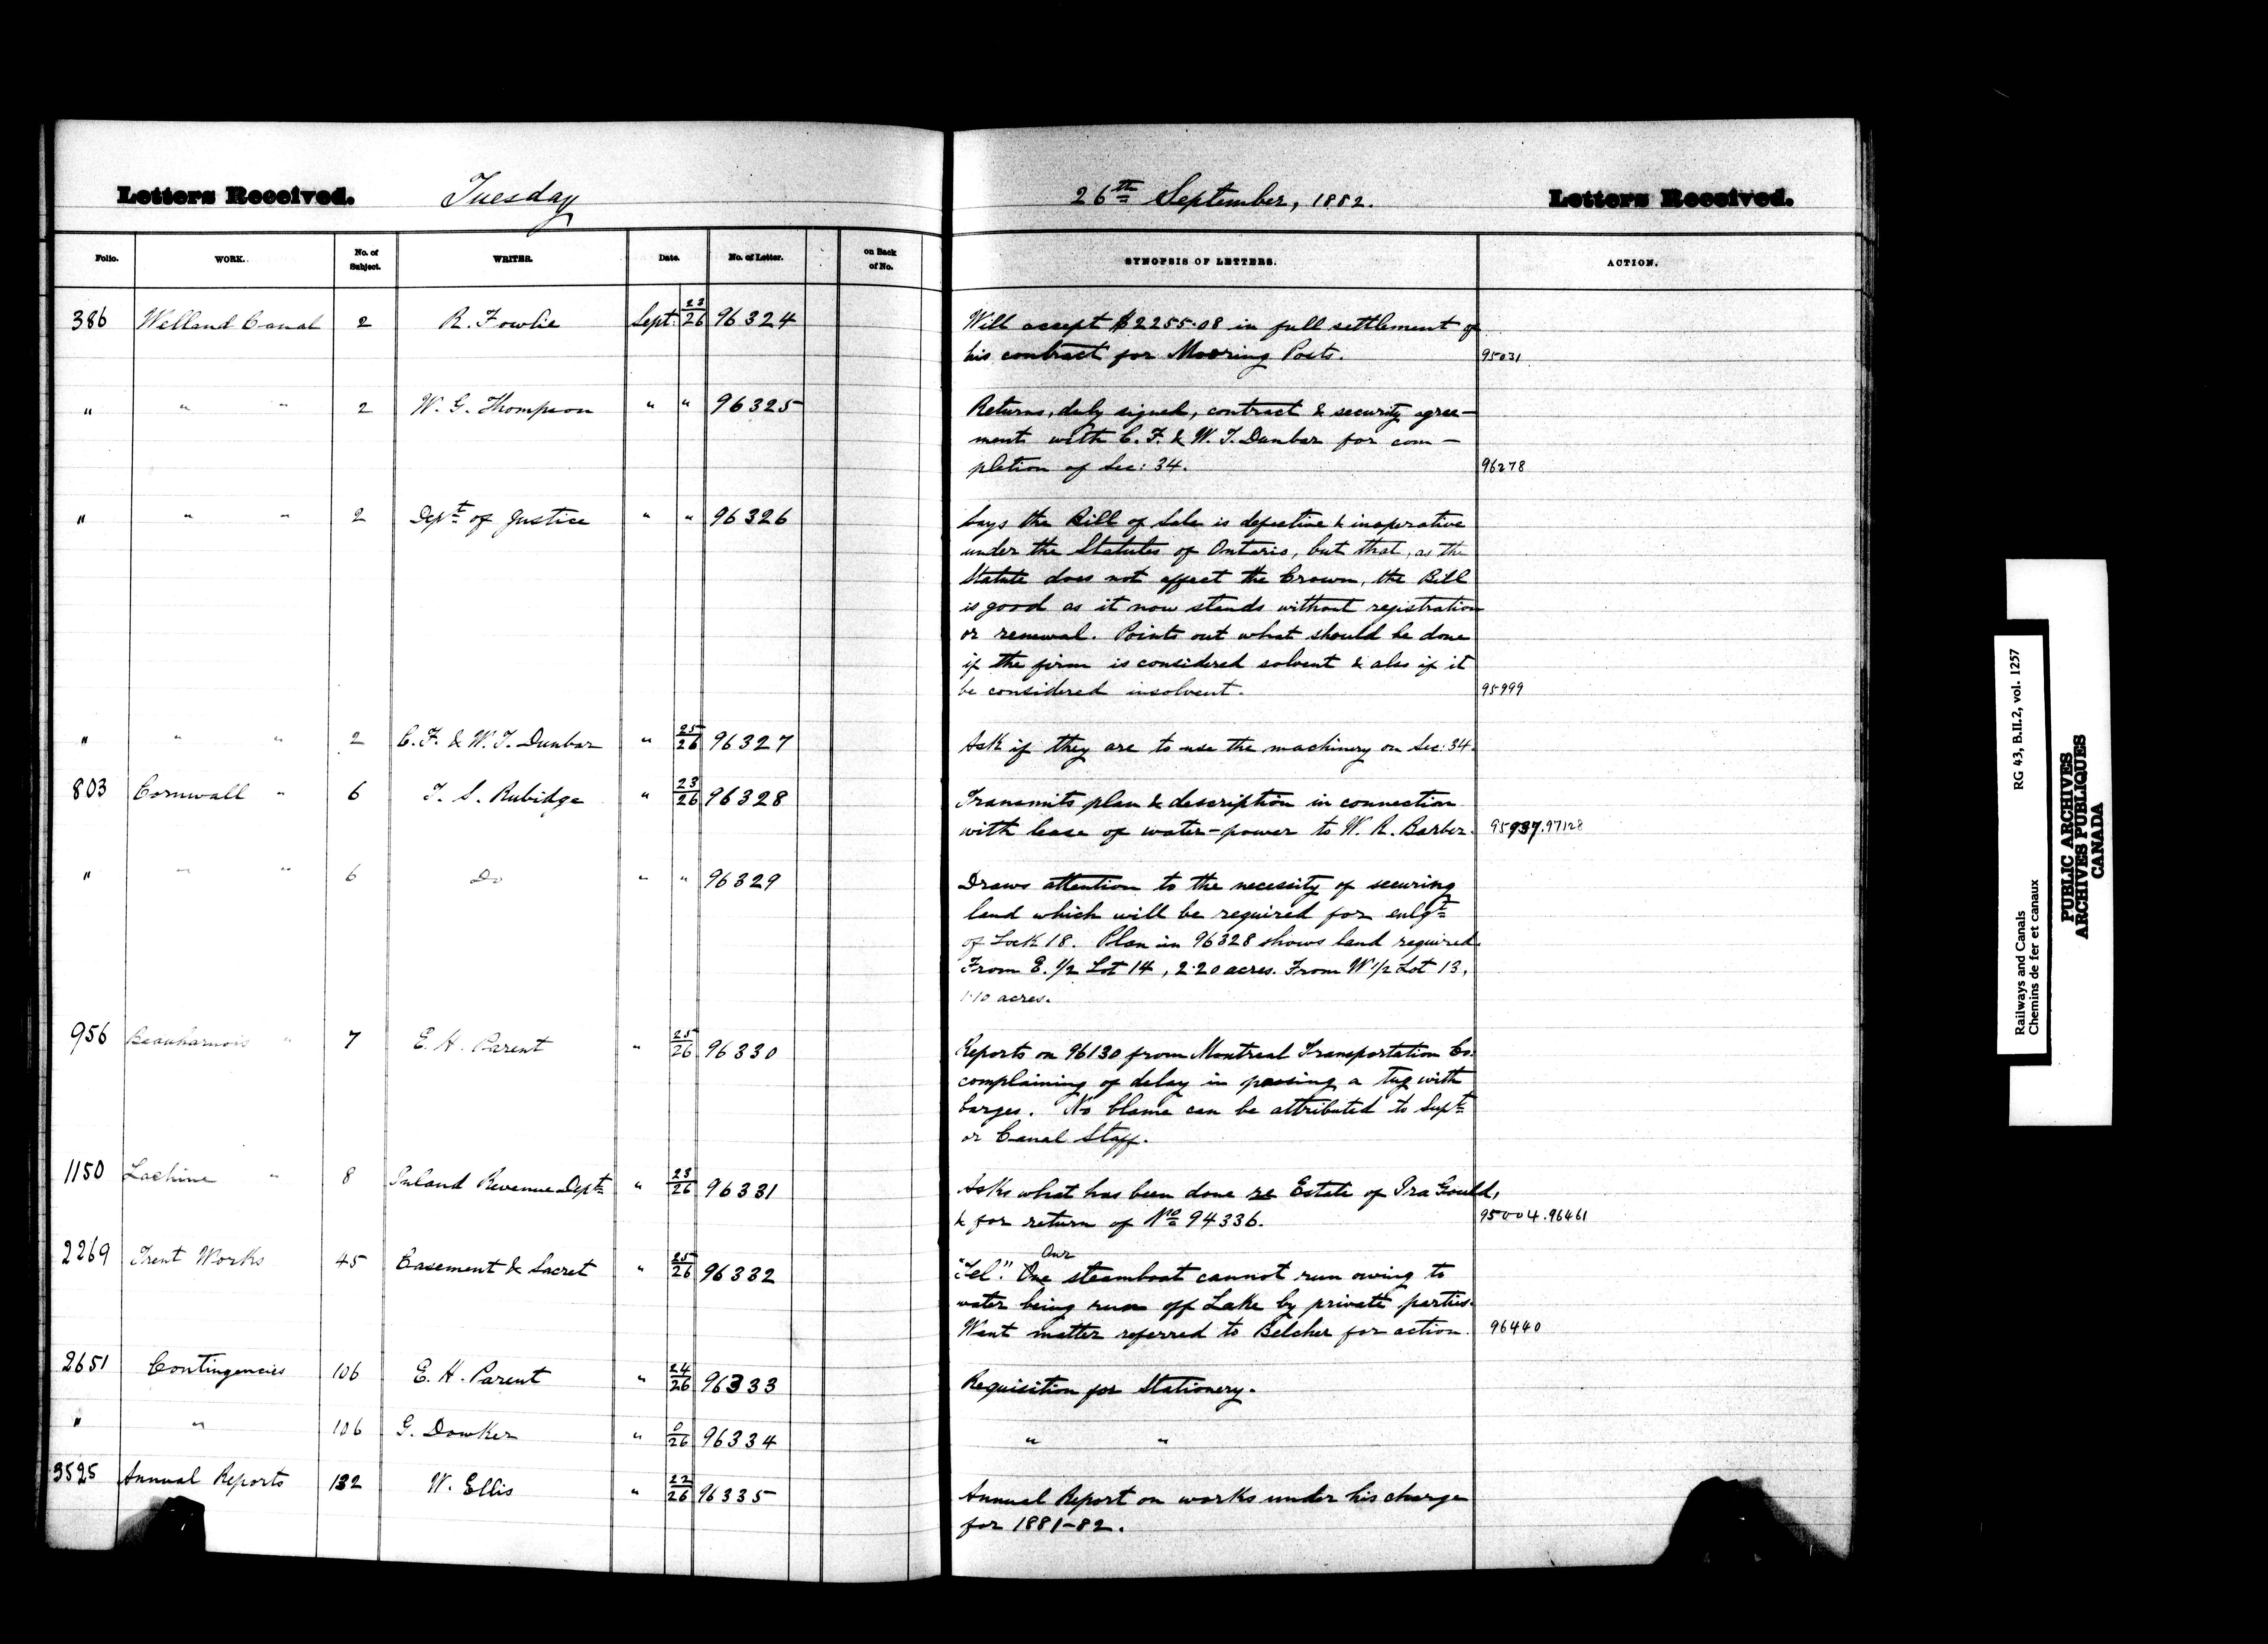 Letters Received. Tuesday 26th September, 1882. Letters Received.
Folio. WORK. No. of Subject. WRITER. Date. No. of Letter. on Back of No. SYNOPSIS OF LETTERS. ACTION.
386 Welland Canal 2 R. Fowlie Sept. 23/26 96324 Will accept $2255.08 in full settlement of
his contract for Mooring Posts. 95031
" " " 2 W. G. Thompson " " 96325 Returns, duly signed, contract & security agree-
ments with C. F. & W. T. Dunbar for com-
pletion of Sec: 34. 96278
" " " 2 Dept of Justice " " 96326 Says the Bill of Sale is defective & inoperative
under the Statutes of Ontario, but that, as the
Statute does not affect the Crown, the Bill
is good as it now stands without registration
or renewal. Points out what should be done
if the firm is considered solvent & also if it
be considered insolvent. 95999
" " " 2 C. F. & W. T. Dunbar " 25/26 96327 Ask if they are to use the machinery on Sec: 34.
803 Cornwall " 6 T. S. Rubidge " 23/26 96328 Transmits plan & description in connection
with lease of water-power to W. R. Barber. 95937.97128
" " " 6 Do " " 96329 Draws attention to the necessity of securing
land which will be required for enlgt
of Lock 18. Plan in 96328 shows land required.
From E. 1/2 Lot 14, 2.20 acres. From W 1/2 Lot 13,
1.10 acres.
956 Beauharnois " 7 E. H. Parent " 25/26 96330 Reports on 96130 from Montreal Transportation Co.
complaining of delay in passing a tug with
barges. No blame can be attributed to Supt
or Canal Staff.
1150 Lachine " 8 Inland Revenue Dept " 23/26 96331 Asks what has been done re Estate of Ira Gould,
& for return of No 94336. 95004.96461
2269 Trent Works 45 Easement & Sacret " 25/26 96332 "Tel". One Our steamboat cannot run owing to
water being run off Lake by private parties.
Want matter referred to Belcher for action. 96440
2651 Contingencies 106 E. H. Parent " 24/26 96333 Requisition for Stationery.
" " 106 G. Dowker " 0/26 96334 " "
3525 Annual Reports 132 W. Ellis " 22/26 96335 Annual Report on works under his charge
for 1881-82.
Railways and Canals RG 43, B.II.2, vol. 1257
Chemins de fer et canaux
PUBLIC ARCHIVES
ARCHIVES PUBLIQUES
CANADA